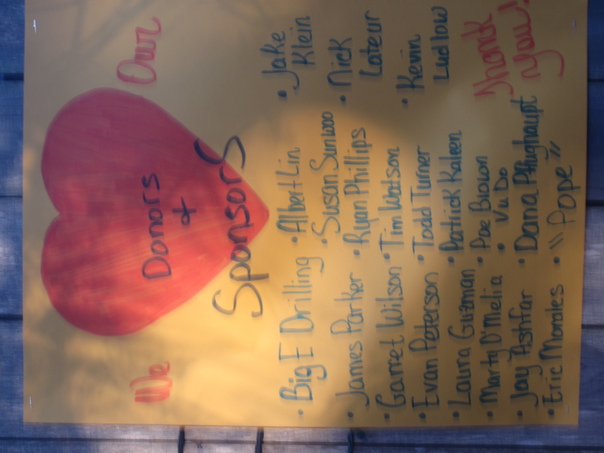 We Our
Donors
+
Sponsors
• Big E Drilling
• James Parker
• Garret Wilson
• Evan Peterson
• Laura Guzman
• Marty O'Melia
• Jay Ashfar
• Eric Morales
• Albert Lin
• Susan Sunwoo
• Ryan Phillips
• Tim Watson
• Todd Turner
• Patrick Kaleen
• Pae Brown
• Vu Do
• Dana Pflughaupt
• "Pope"
• Jake
Klein
• Nick
Lateur
• Kevin
Ludlow
Thank
You!